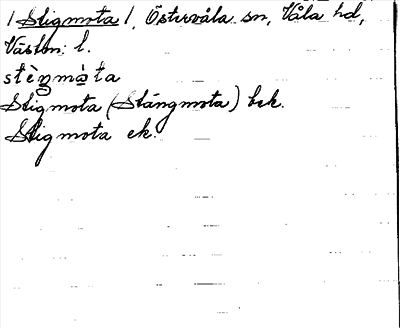 / Stigmota /, Östervåla sn, Våla hd,
Västm. l.
stèŋmὰta
Stigmota (Stängmota) bek.
Stigmota ek.